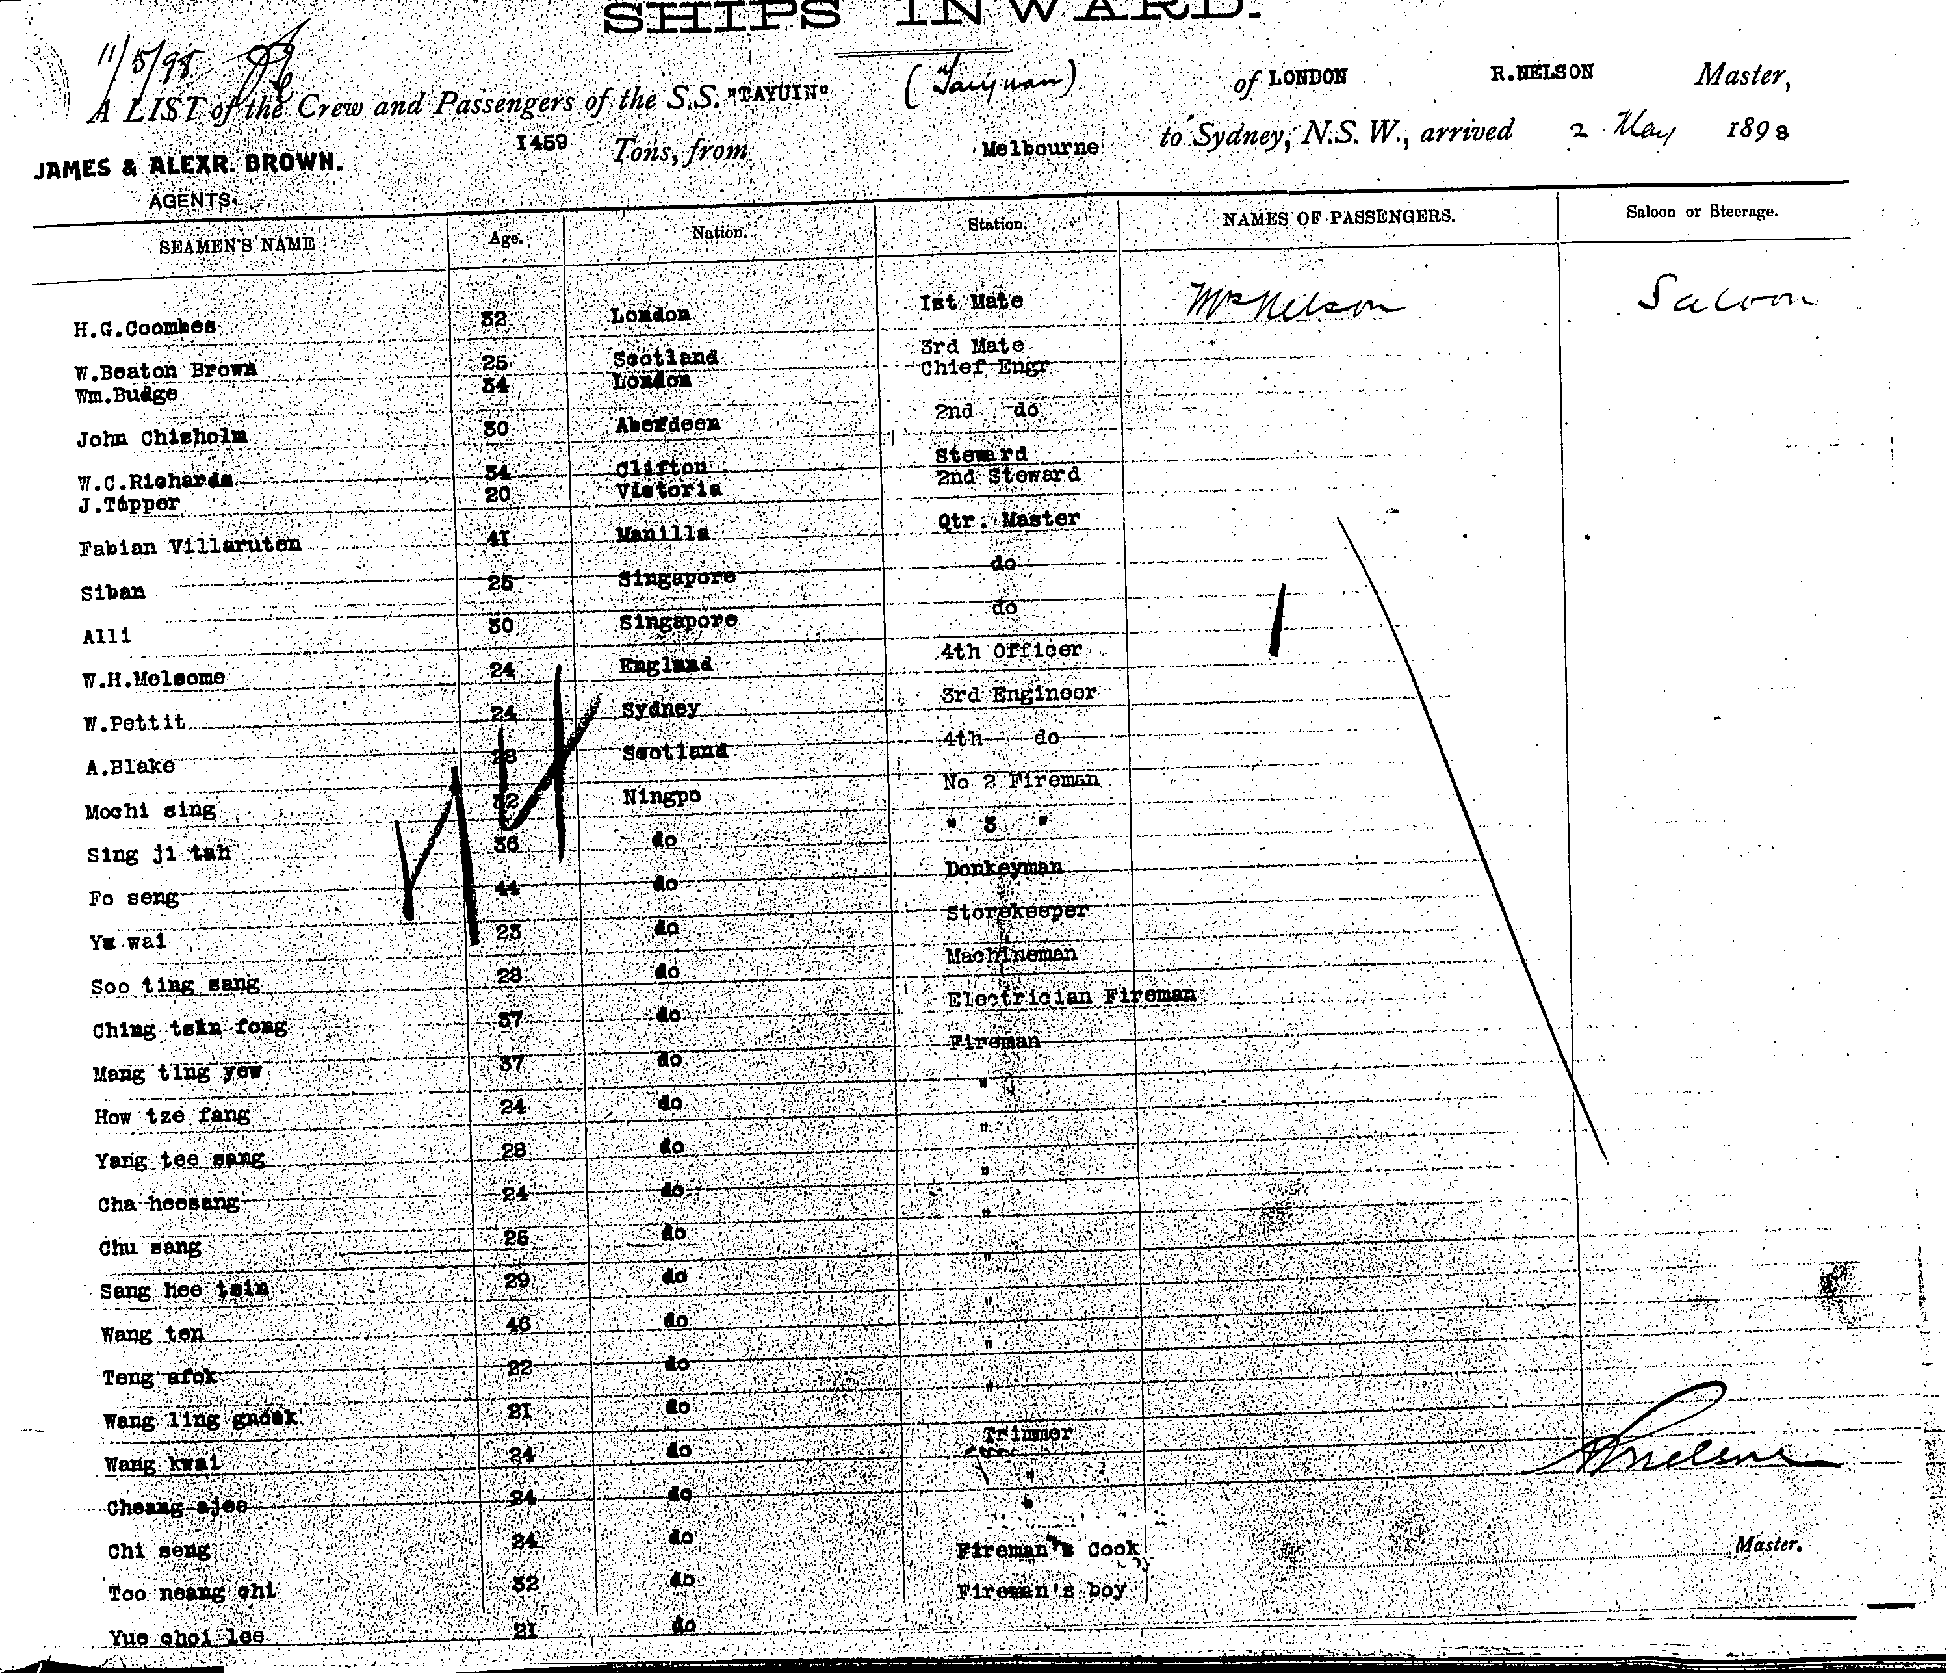 SHIPS INWARD.
11/5/98
A LIST of the Crew and Passengers of the S.S. "TAYUIN" (Taiyuan) of LONDON R.NELSON Master,
1459 Tons, from Melbourne to Sydney, N.S.W., arrived 2 May 1898
JAMES & ALEXR. BROWN.
AGENTS.
SEAMEN'S NAME Age. Nation. Station. NAMES OF PASSENGERS. Saloon or Steerage.
H.G.Coombes 32 London 1st Mate Mrs Nelson Saloon
W.Beaton Brown 25 Scotland 3rd Mate
Wm.Budge 34 London Chief Engr
John Chisholm 30 Aberdeen 2nd do
W.C.Richards 34 Clifton Steward
J.Tapper 20 Victoria 2nd Steward
Fabian Villaruten 41 Manilla Qtr. Master
Siban 25 Singapore do
Alli 30 Singapore do
W.H.Melsome 24 England 4th Officer
W.Pettit 24 Sydney 3rd Engineer
A.Blake 28 Scotland 4th do
Mochi sing 32 Ningpo No 2 Fireman
Sing ji tah 36 do " 3 "
Fo seng 44 do Donkeyman
Ya wai 23 do Storekeeper
Soo ting sang 28 do Machineman
Ching tsin fong 37 do Electrician Fireman
Mang ting yew 37 do Fireman
How tze fang 24 do "
Yang tee sang 28 do "
Cha heesang 24 do "
Chu sang 25 do "
Sang hee tsin 29 do "
Wang ten 46 do "
Teng afok 22 do "
Wang ling gnoek 21 do "
Wang kwai 24 do Trimmer
Cheang ajee 24 do "
Chi seng 24 do "
Too neang chi 32 do Fireman's Cook
Yue choi lee 21 do Fireman's boy
RNelson
Master.